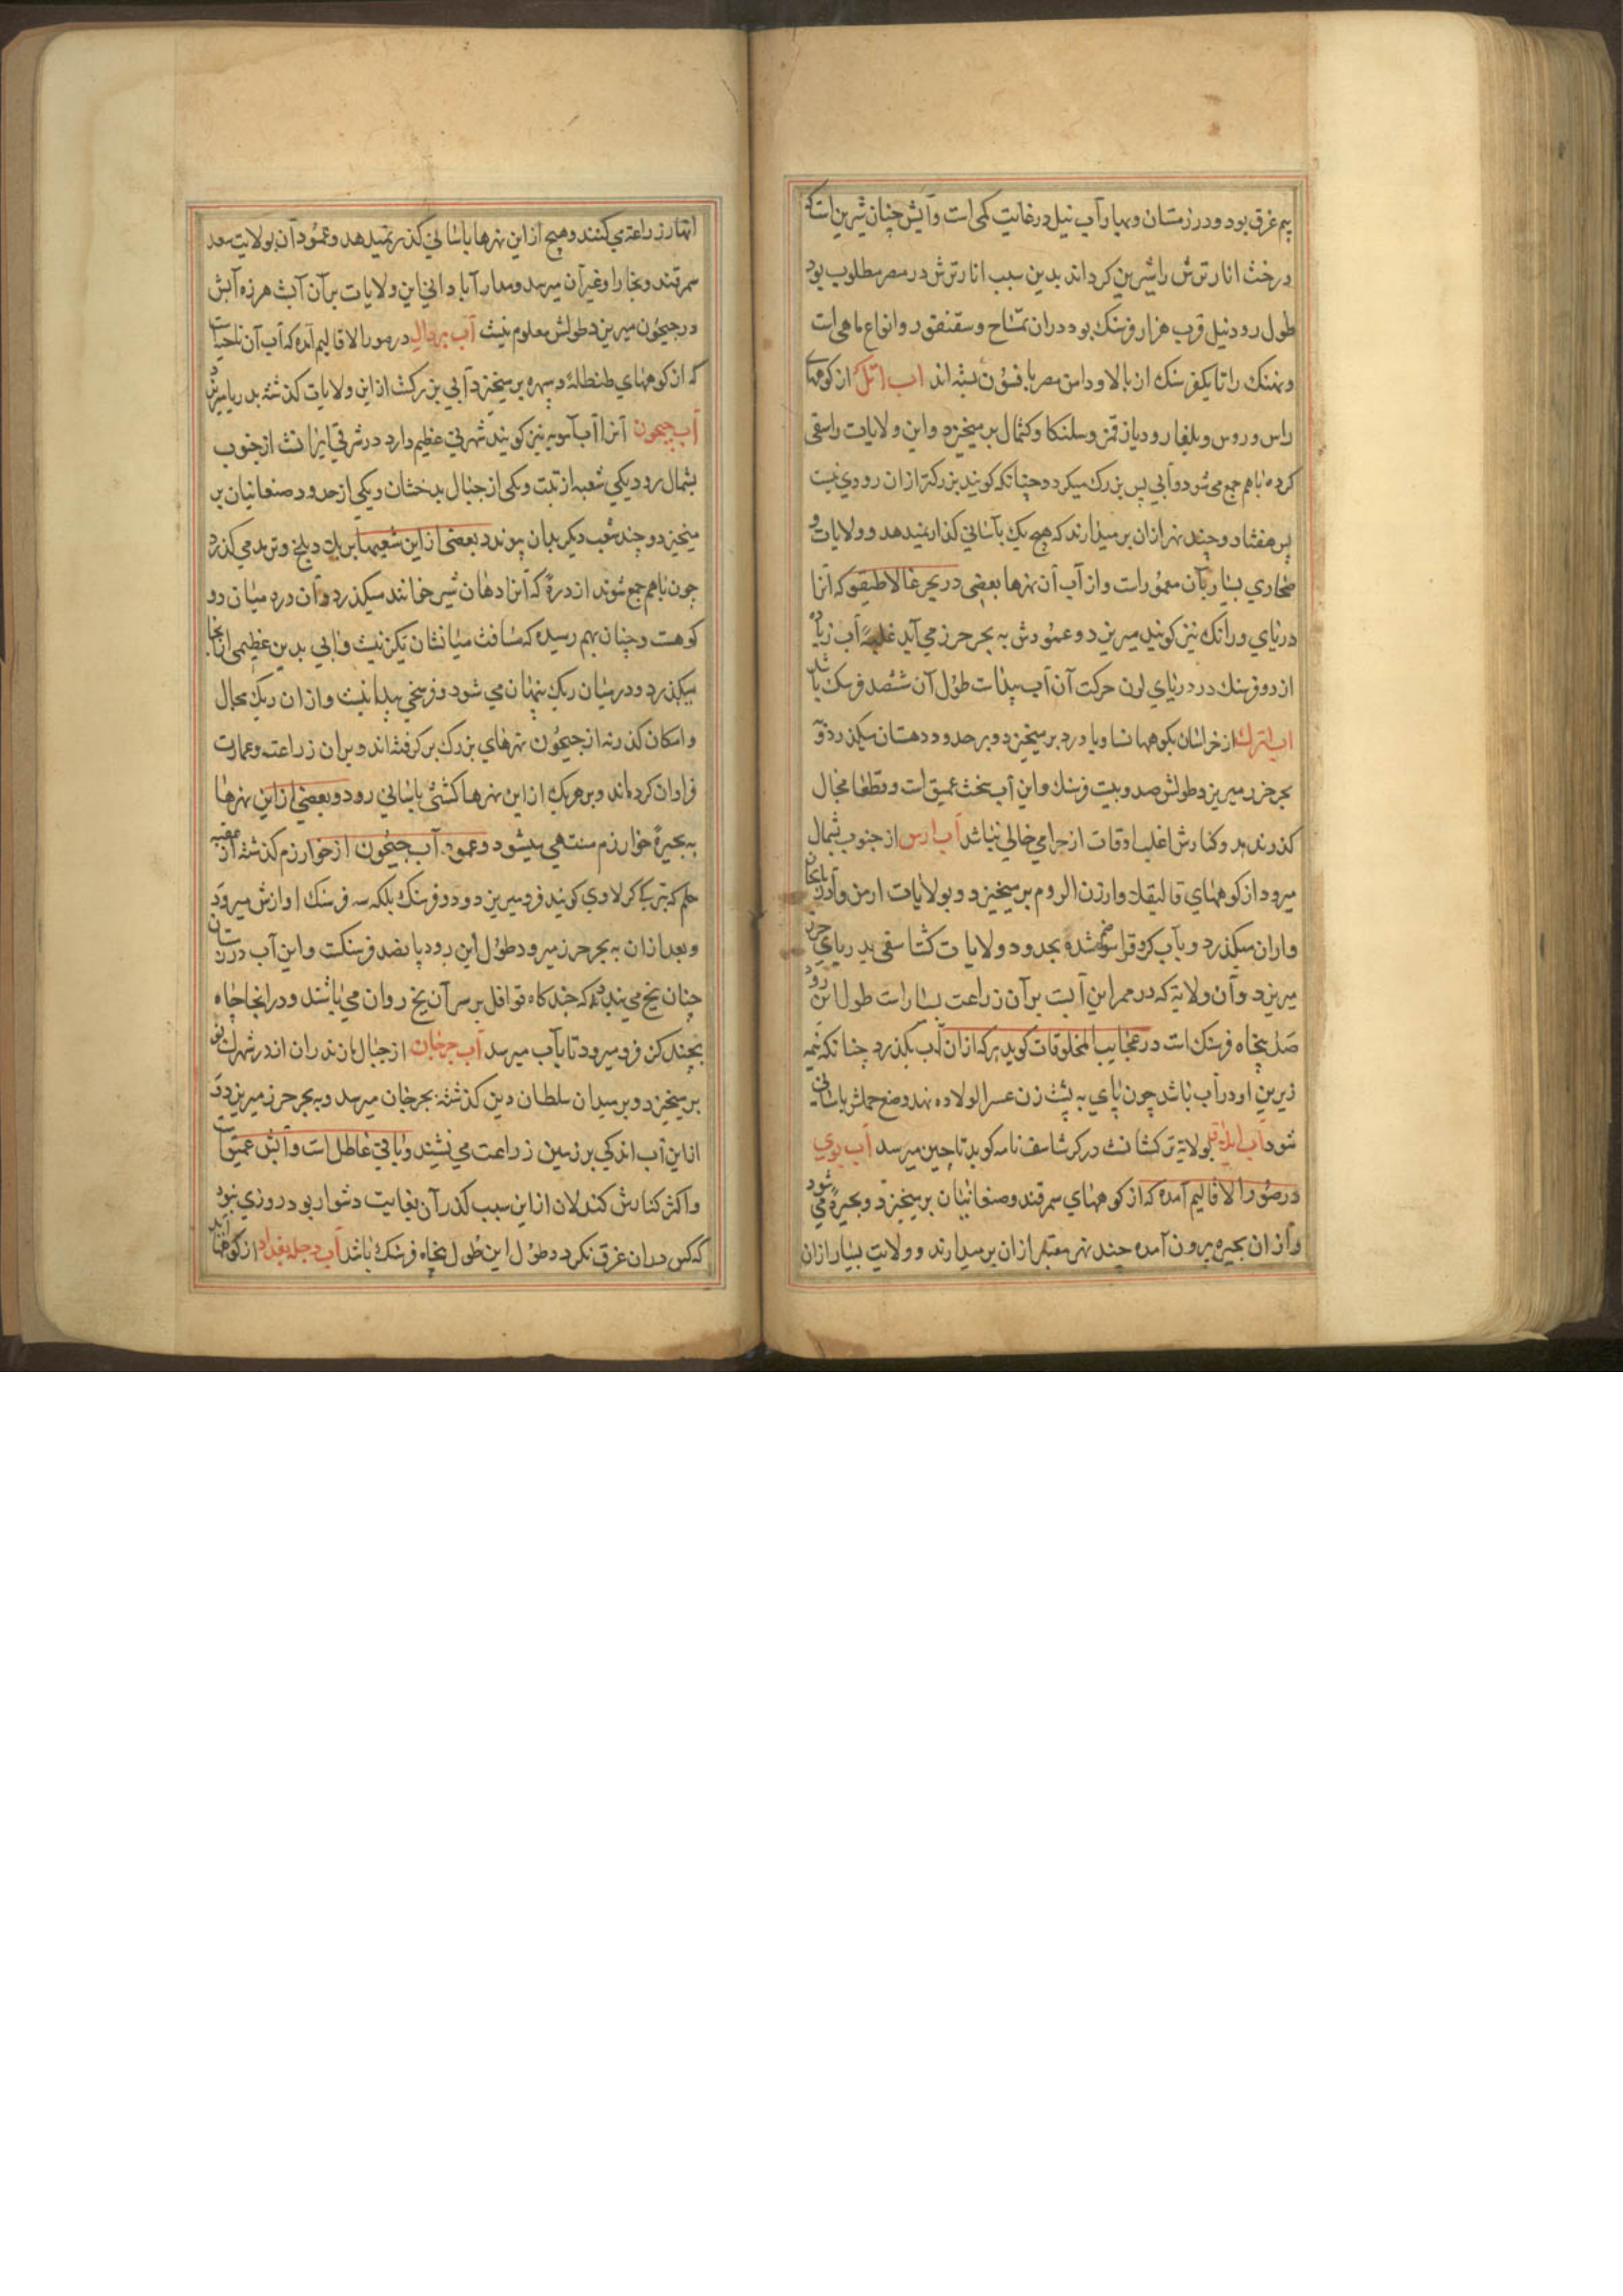 بیم غرق بود و در زمستان و بهار آب نیل در غایت کمی است و آبش چنان شیرین است که
درخت انار ترش را شیرین کرداند بدین سبب انار ترش در مصر مطلوب بود
طول رود نیل قرب هزار فرسنک بود در آن تمساح و سقنقور و انواع ماهی است
و نهنک را تا یکفرسنک از بالا و دامن مصر بافسون بسته اند آب اتل از کوههای
راس و روس و بلغار و دیار و سلنکا و کتمال بر میخیزد و این ولایات را سقی
کرده باهم جمع می شود و آبی بس بزرک میکردد چنانکه کویند بزرکتر از آن رودی نیست
پس هفتاد و چند نهر از آن بر میدارند که هیچ یک بآسانی کذار نمیدهد و ولایات و
صحاری بسیار بآن معمور است و از آب آن نهرها بعضی در بحر غالاطیقو که آنرا
دریای ورانک نیز کویند میریزد و عمودش به بحر خزر می آید غلبه آب زیاده
از دو فرسنک در دریای لون حرکت آن آب پیداست طول آن ششصد فرسنک باشد
آب اترک از خراسان بکوهها نسا و باورد بر میخیزد و بر حدود دهستان میکذرد و
بحر خزر میریزد طولش صد و بیست فرسنک و این آب سخت عمیق است و قطعا مجال
کذر ندهد و کنارش اغلب اوقات از حرامی خالی نباشد آب ارس از جنوب بشمال
میرود از کوههای قالیقلا و ارزن الروم بر میخیزد و بولایات ارمن و آذربایجان
و اران میکذرد و بآب کر و قراسو ضم شده بحدود ولایات کشتاسفی بدریای خزر
میریزد و آن ولایة که در ممر این آبست بر آن زراعت بسیار است طول این رود
صد پنجاه فرسنک است در عجایب المخلوقات کوید هر که از آن آب بکذرد چنانکه نیمه
زیرین او در آب باشد چون پای به پشت زن عسر الولاده نهد وضع حملش بآسانی
شود آب بولایة ترکستانست در کرشاسف نامه کوید تا چین میرسد آب بوی
در صور الاقالیم آمده که از کوههای سمرقند و صغانیان بر میخیزد و بحیره می شود
و از آن بحیره برون آمده چند نهر معتبر از آن بر میدارند و ولایت بسیار از آن
انهار زراعة می کنند و هیچ از این نهرها بآسانی کذر نمیدهد و عمود آن بولایت سغد
سمرقند و بخارا و غیر آن میرسد و مدار آبادانی این ولایات بر آن آبست هرزه آبش
در جیحون میریزد طولش معلوم نیست آب بردال در صور الاقالیم آمده که آب آن ناحیتست
که از کوههای طنطاله و سهره بر میخیزد آبی بزرکست از این ولایات کذشته بدریا میریزد
آب جیحون آنرا آب آمویه نیز کویند شهرتی عظیم دارد در شرقی ایرانست از جنوب
بشمال رود یکی شعبه از تبت و یکی از جبال بدخشان و یکی از حدود صغانیان بر
میخیزد و چند شعب دیکر بدان پیوندد بعضی از این شعبها بر بلخ و ترمد می کذرد
چون باهم جمع شوند از دره که آنرا دهان شیر خوانند میکذرد و آن دره میان دو
کوهست و چنان بهم رسیده که مسافت میانشان یکز نیست و آبی بدین عظیمی از آنجا
میکذرد و در میان ریک پنهان می شود و فرسخی پیدا نیست و از آن ریک مجال
و امکان کذر نه از جیحون نهرهای بزرک بر کرفته اند و بر آن زراعت و عمارت
فراوان کرده اند و بر هر یک از این نهرها کشتی بآسانی رود و بعضی از این نهرها
به بحیره خوارزم منتهی میشود و عمود آب جیحون از خوارزم کذشته از عقبه
حلم که بترکی کرلاوی کویند فرو میریزد و دو فرسنک بلکه سه فرسنک اوازش میرود
و بعد از آن به بحر خزر میرود طول این رود پانصد فرسنکست و این آب در زمستان
چنان یخ می بندد که چند کاه قوافل بر سر آن یخ روان می باشند و در آنجا چاه
بچند کز فرو میرود تا بآب میرسد آب جرجان از جبال مازندران اندر شهرک نو
بر میخیزد و بر میدان سلطان دین کذشته بجرجان میرسد و به بحر خزر میریزد و
از این آب اندکی بر زمین زراعت می نشیند و باقی عاطل است و آبش عمیق است
و اکثر کنارش کندلان از این سبب کذر آن بغایت دشوار بود روزی نبود
که کس در آن غرق نکردد طول این طول پنجاه فرسنک باشد آب دجله بغداد از کوهها